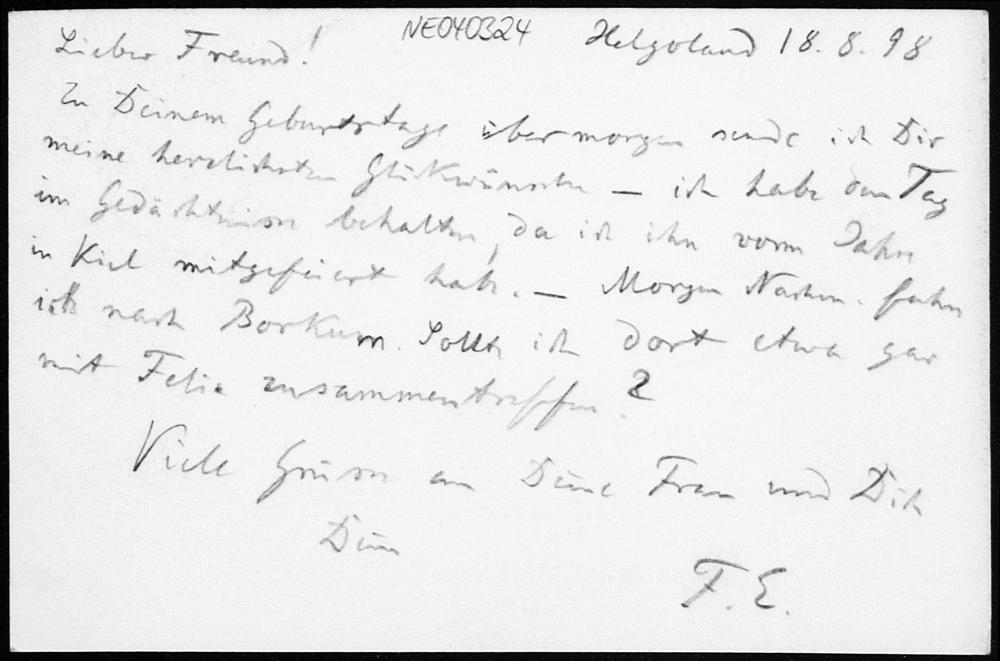 NE040324 Helgoland 18. 8. 98
Lieber Freund!
Zu Deinem Geburtstage übermorgen sende ich Dir
meine herzlichsten Glückwünsche — ich habe den Tag
im Gedächtnisse behalten, da ich ihn vorm Jahre
in Kiel mitgefeiert habe. — Morgen Nachm. fahre
ich nach Borkum. Sollte ich dort etwa gar
mit Felix zusammentreffen?
Viele Grüsse an Deine Frau und Dich
Dein
F. E.